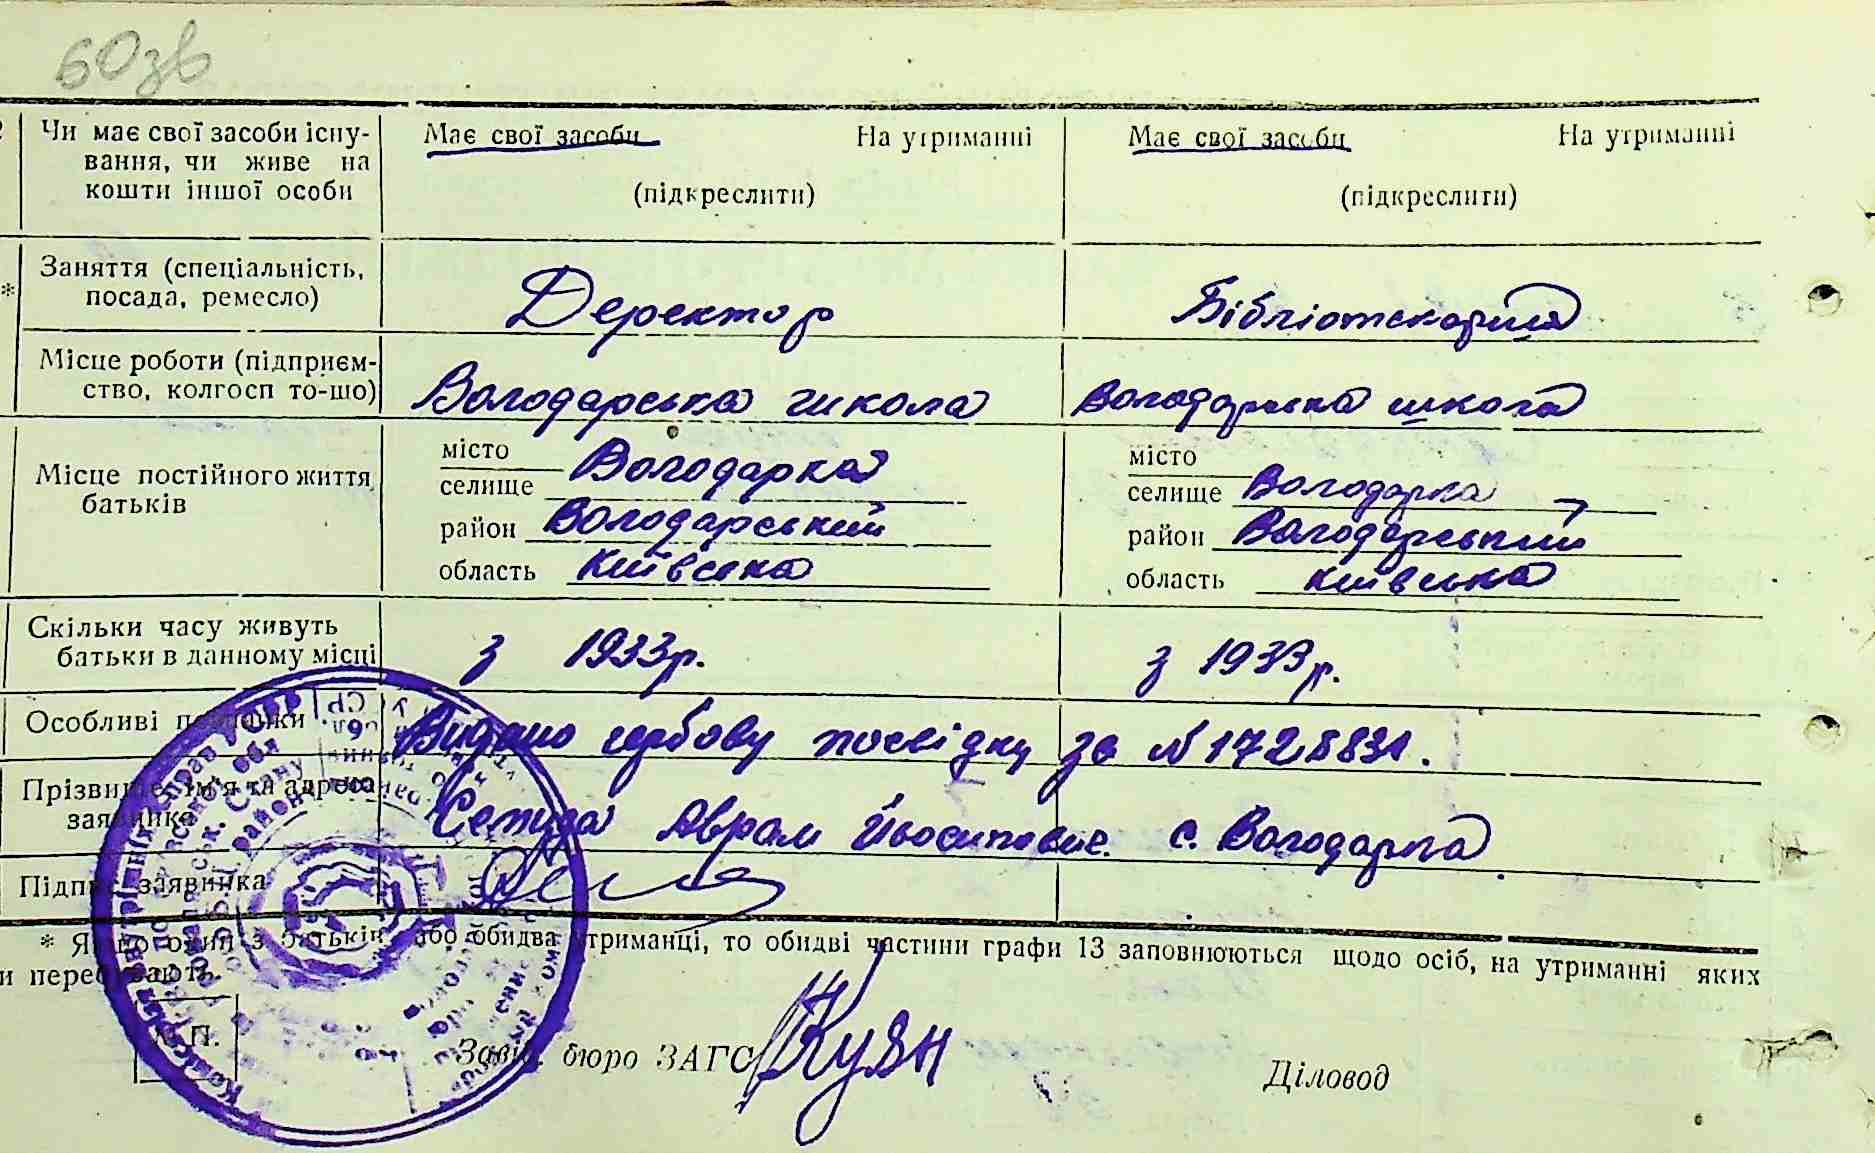 60зв
Чи має свої засоби існу-
вання, чи живе на
кошти іншої особи
Має свої засоби На утриманні
(підкреслити)
Має свої засоби На утриманні
(підкреслити)
* Заняття (спеціальність,
посада, ремесло)
Деректор
Бібліотекарша
Місце роботи (підприєм-
ство, колгосп то-що)
Володарська школа
Володарська школа
Місце постійного життя
батьків
місто
селище Володарка
район Володарський
область Київська
місто
селище Володарка
район Володарський
область Київська
Скільки часу живуть
батьки в данному місці
з 1933р.
з 1933р.
Особливі
Видано гербову посвідку за N 1728831.
Прізвище, ім'я та адреса
заявника
Аврам Йосипович. с. Володарка
Підпис заявника
* Якщо один з батьків або обидва утриманці, то обидві частини графи 13 заповнюються щодо осіб, на утриманні яких
и перебувають.
М. П.
Завід. бюро ЗАГС Куян
Діловод